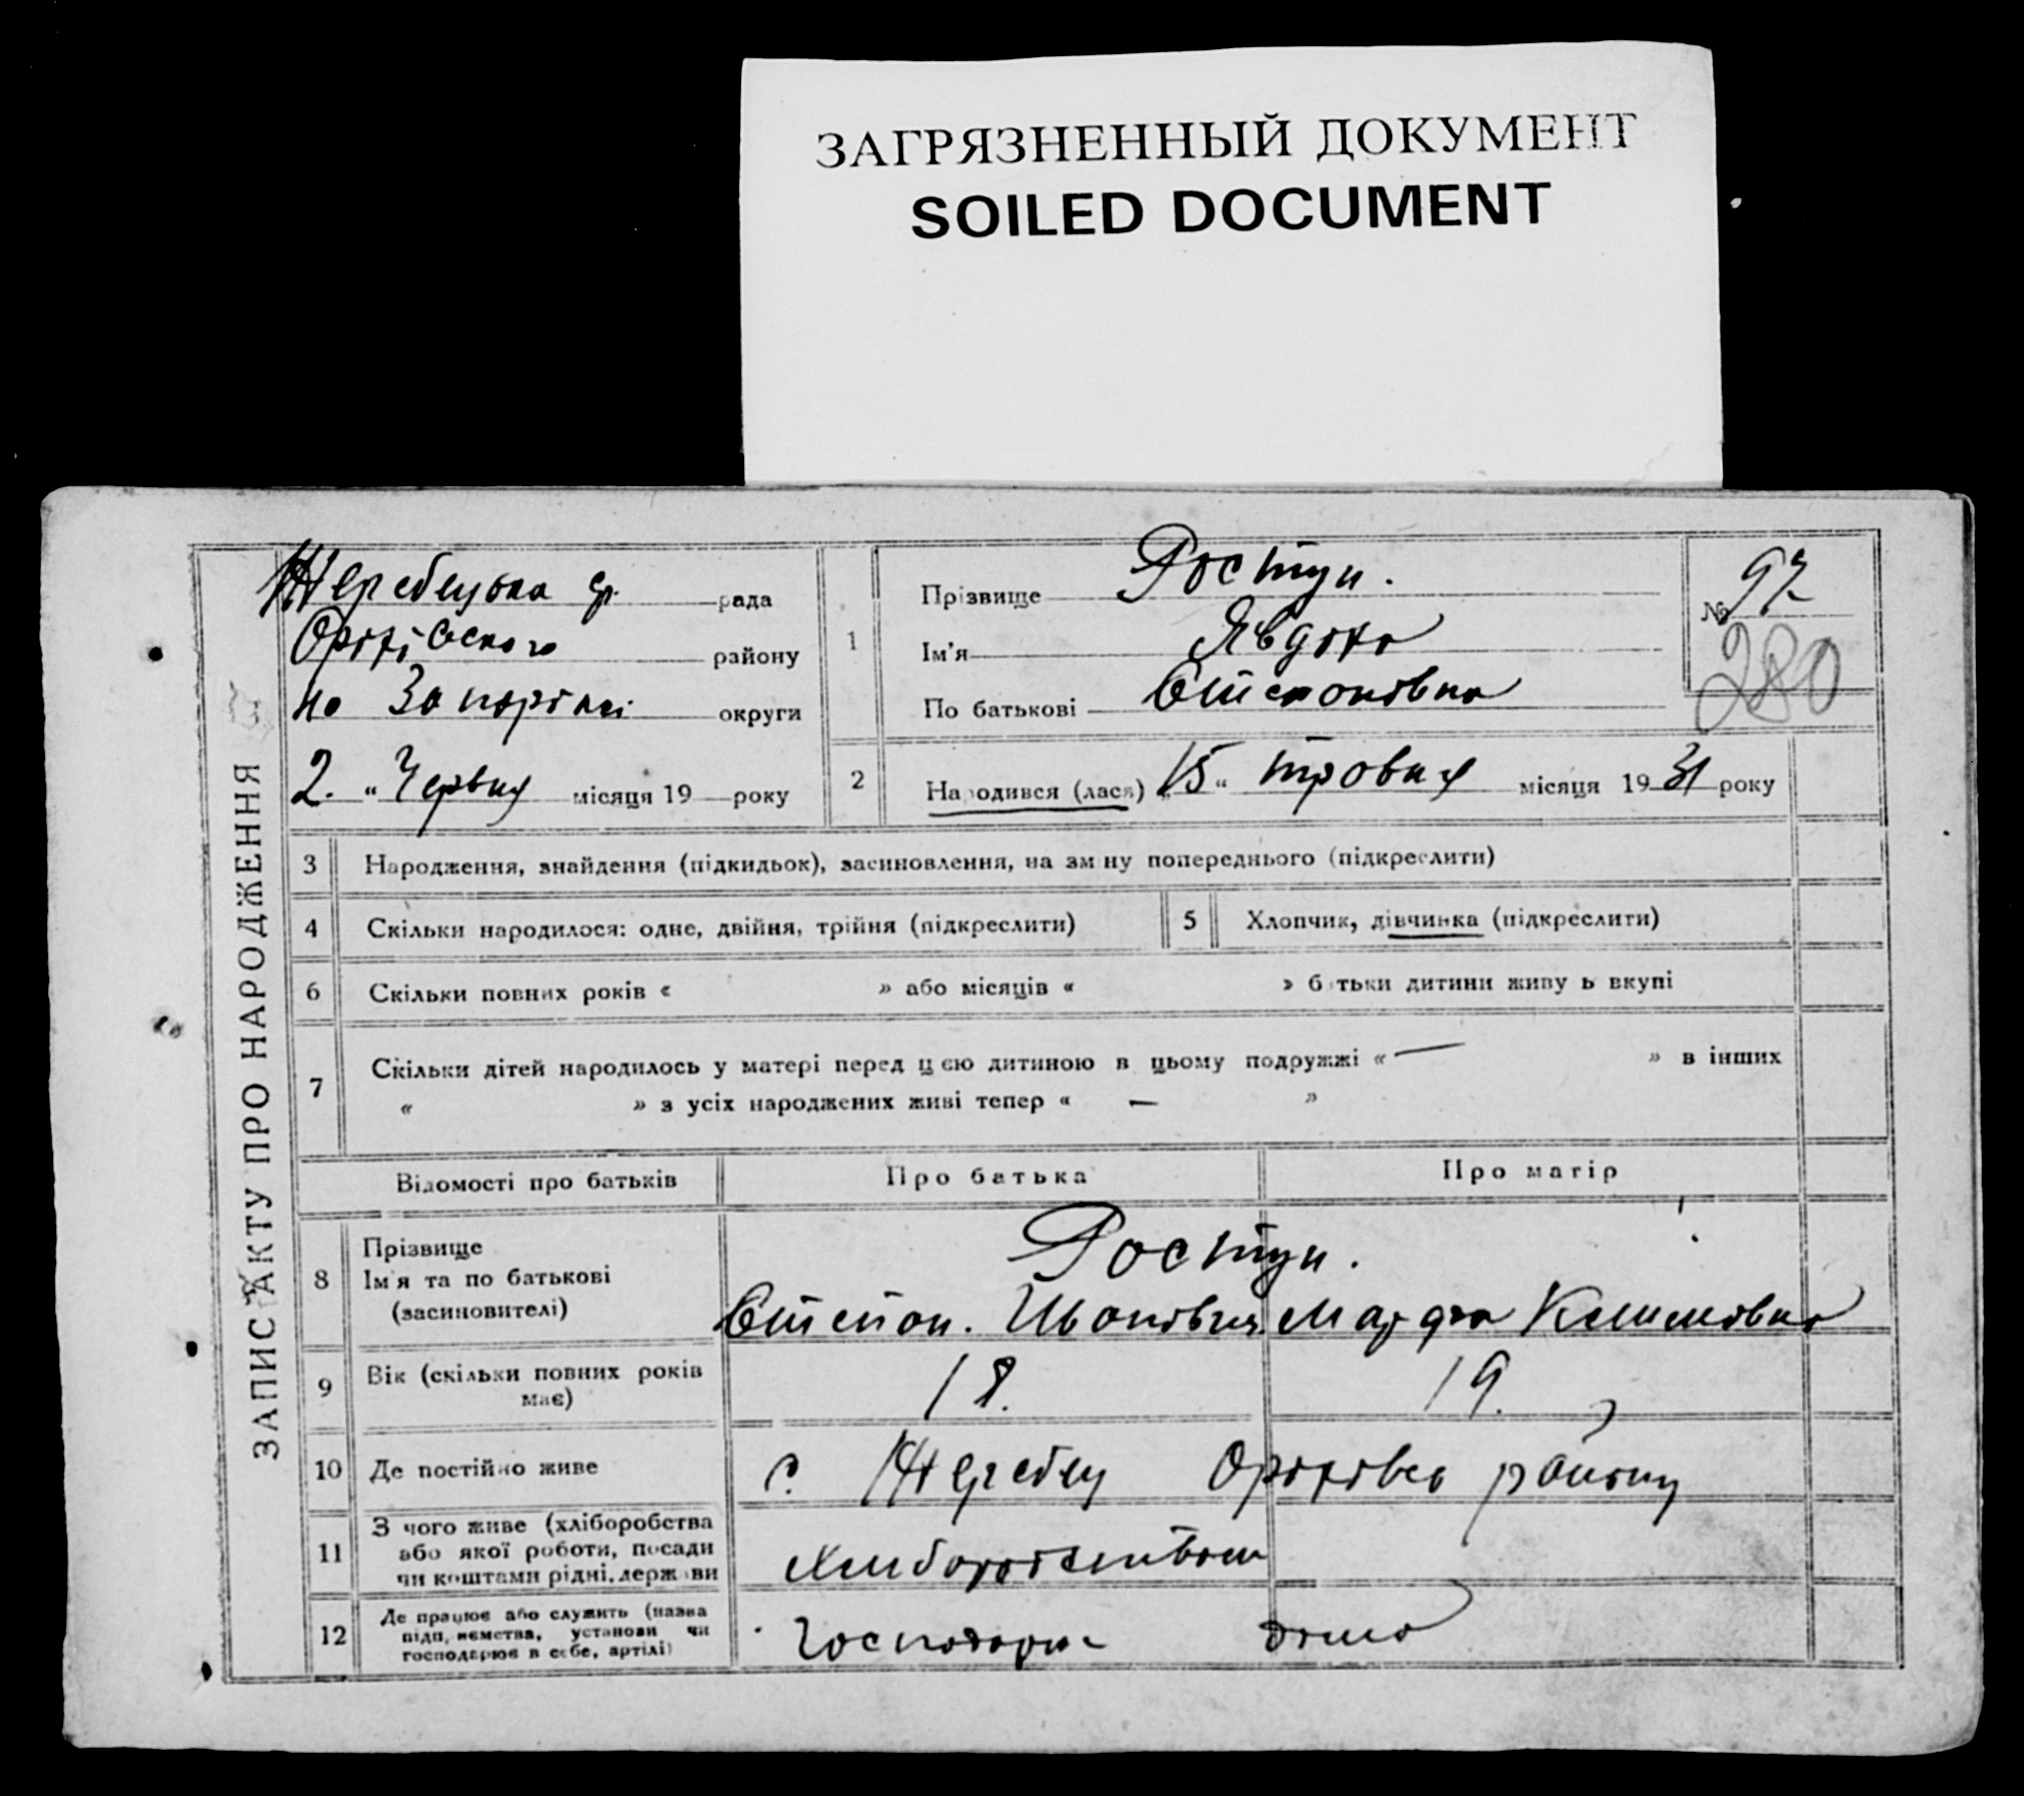 ЗАГРЯЗНЕННЫЙ ДОКУМЕНТ
SOILED DOCUMENT
ЗАПИС АКТУ ПРО НАРОДЖЕННЯ
Жеребецька с.р. рада
Оріхівського району
на Запоріжжі округи
2. „ Червня місяця 19 року
1
Прізвище Ростун.
Ім'я Явдоха
По батькові Степановна
№ 97
280
2 Народився (лася) „ 15 “ травня місяця 19 31 року
3 Народження, знайдення (підкидьок), засиновлення, на зміну попереднього (підкреслити)
4 Скільки народилося: одне, двійня, трійня (підкреслити)
5 Хлопчик, дівчинка (підкреслити)
6 Скільки повних років « » або місяців « » батьки дитини живуть вкупі
7 Скільки дітей народилось у матері перед цією дитиною в цьому подружжі « — » в інших
« » з усіх народжених живі тепер « — »
Відомості про батьків Про батька Про матір
8 Прізвище
Ім'я та по батькові
(засиновителі)
Ростун.
Степан. Іванович Марфа Климовна
9 Вік (скільки повних років
має)
18. 19.
10 Де постійно живе с. Жеребец Оріхівсь району
11 З чого живе (хліборобства
або якої роботи, посади
чи коштами рідні, держави
Хліборобством
12 Де працює або служить (назва
підприємства, установи чи
господарює в себе, артілі)
Господарює дома